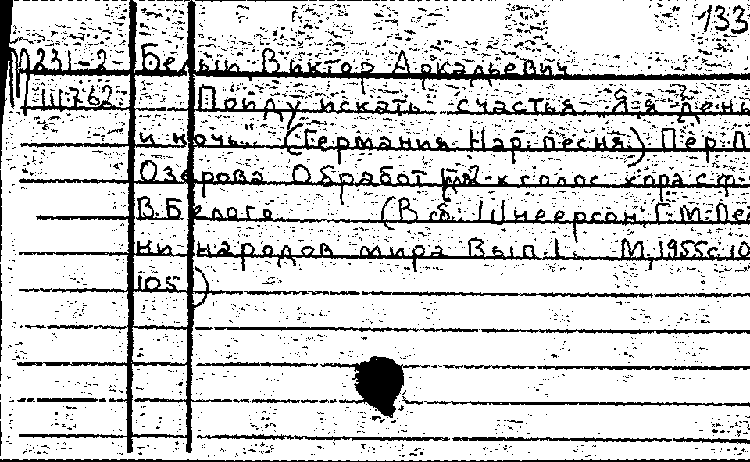 133
М231-2 Белый, Виктор Аркадьевич
111762 Пойду искать счастья „Я-я день
и ночь" (Германия. Нар. песня.) Пер. Л.
Озерова Обработ для 2-х голос хора с ф-
В. Белого (В сб.: Шнеерсон, Г. М. Пес
ни народов мира Вып. 1. М, 1955 с. 10
105)